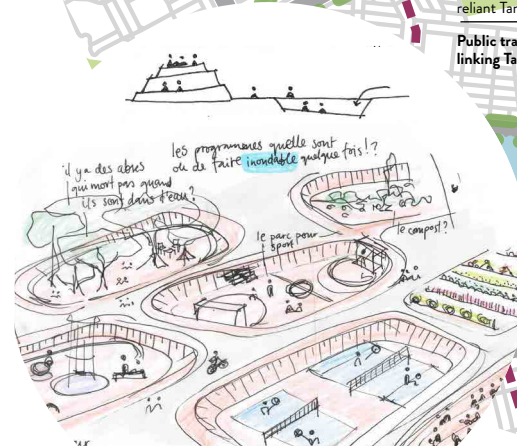 reliant Tar
Public tra
linking Ta
les programmes quelle sont
ou de faite inondable quelque fois!?
il ya des abres
qui mort pas quand
ils sont dans d'eau?
le parc pour
sport
le compost?